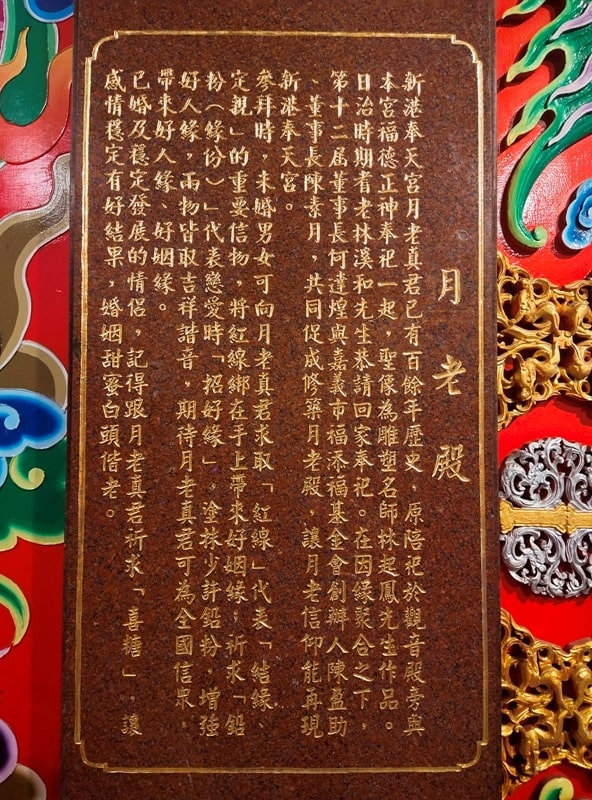 月老殿
新港奉天宮月老真君已有百餘年歷史，原陪祀於觀音殿旁與
本宮福德正神奉祀一起，聖像為雕塑名師林起鳳先生作品。
日治時期耆老林溪和先生恭請回家奉祀。在因緣聚合之下，
第十二屆董事長何達煌與嘉義市福添福基金會創辦人陳盈助
、董事長陳素月，共同促成修築月老殿，讓月老信仰能再現
新港奉天宮。
參拜時，未婚男女可向月老真君求取「紅線」代表「結緣、
定親」的重要信物，將紅線綁在手上帶來好姻緣；祈求「鉛
粉（緣份）」代表戀愛時「招好緣」，塗抹少許鉛粉，增強
好人緣，兩物皆取吉祥諧音，期待月老真君可為全國信眾，
帶來好人緣、好姻緣。
已婚及穩定發展的情侶，記得跟月老真君祈求「喜糖」，讓
感情穩定有好結果，婚姻甜蜜白頭偕老。